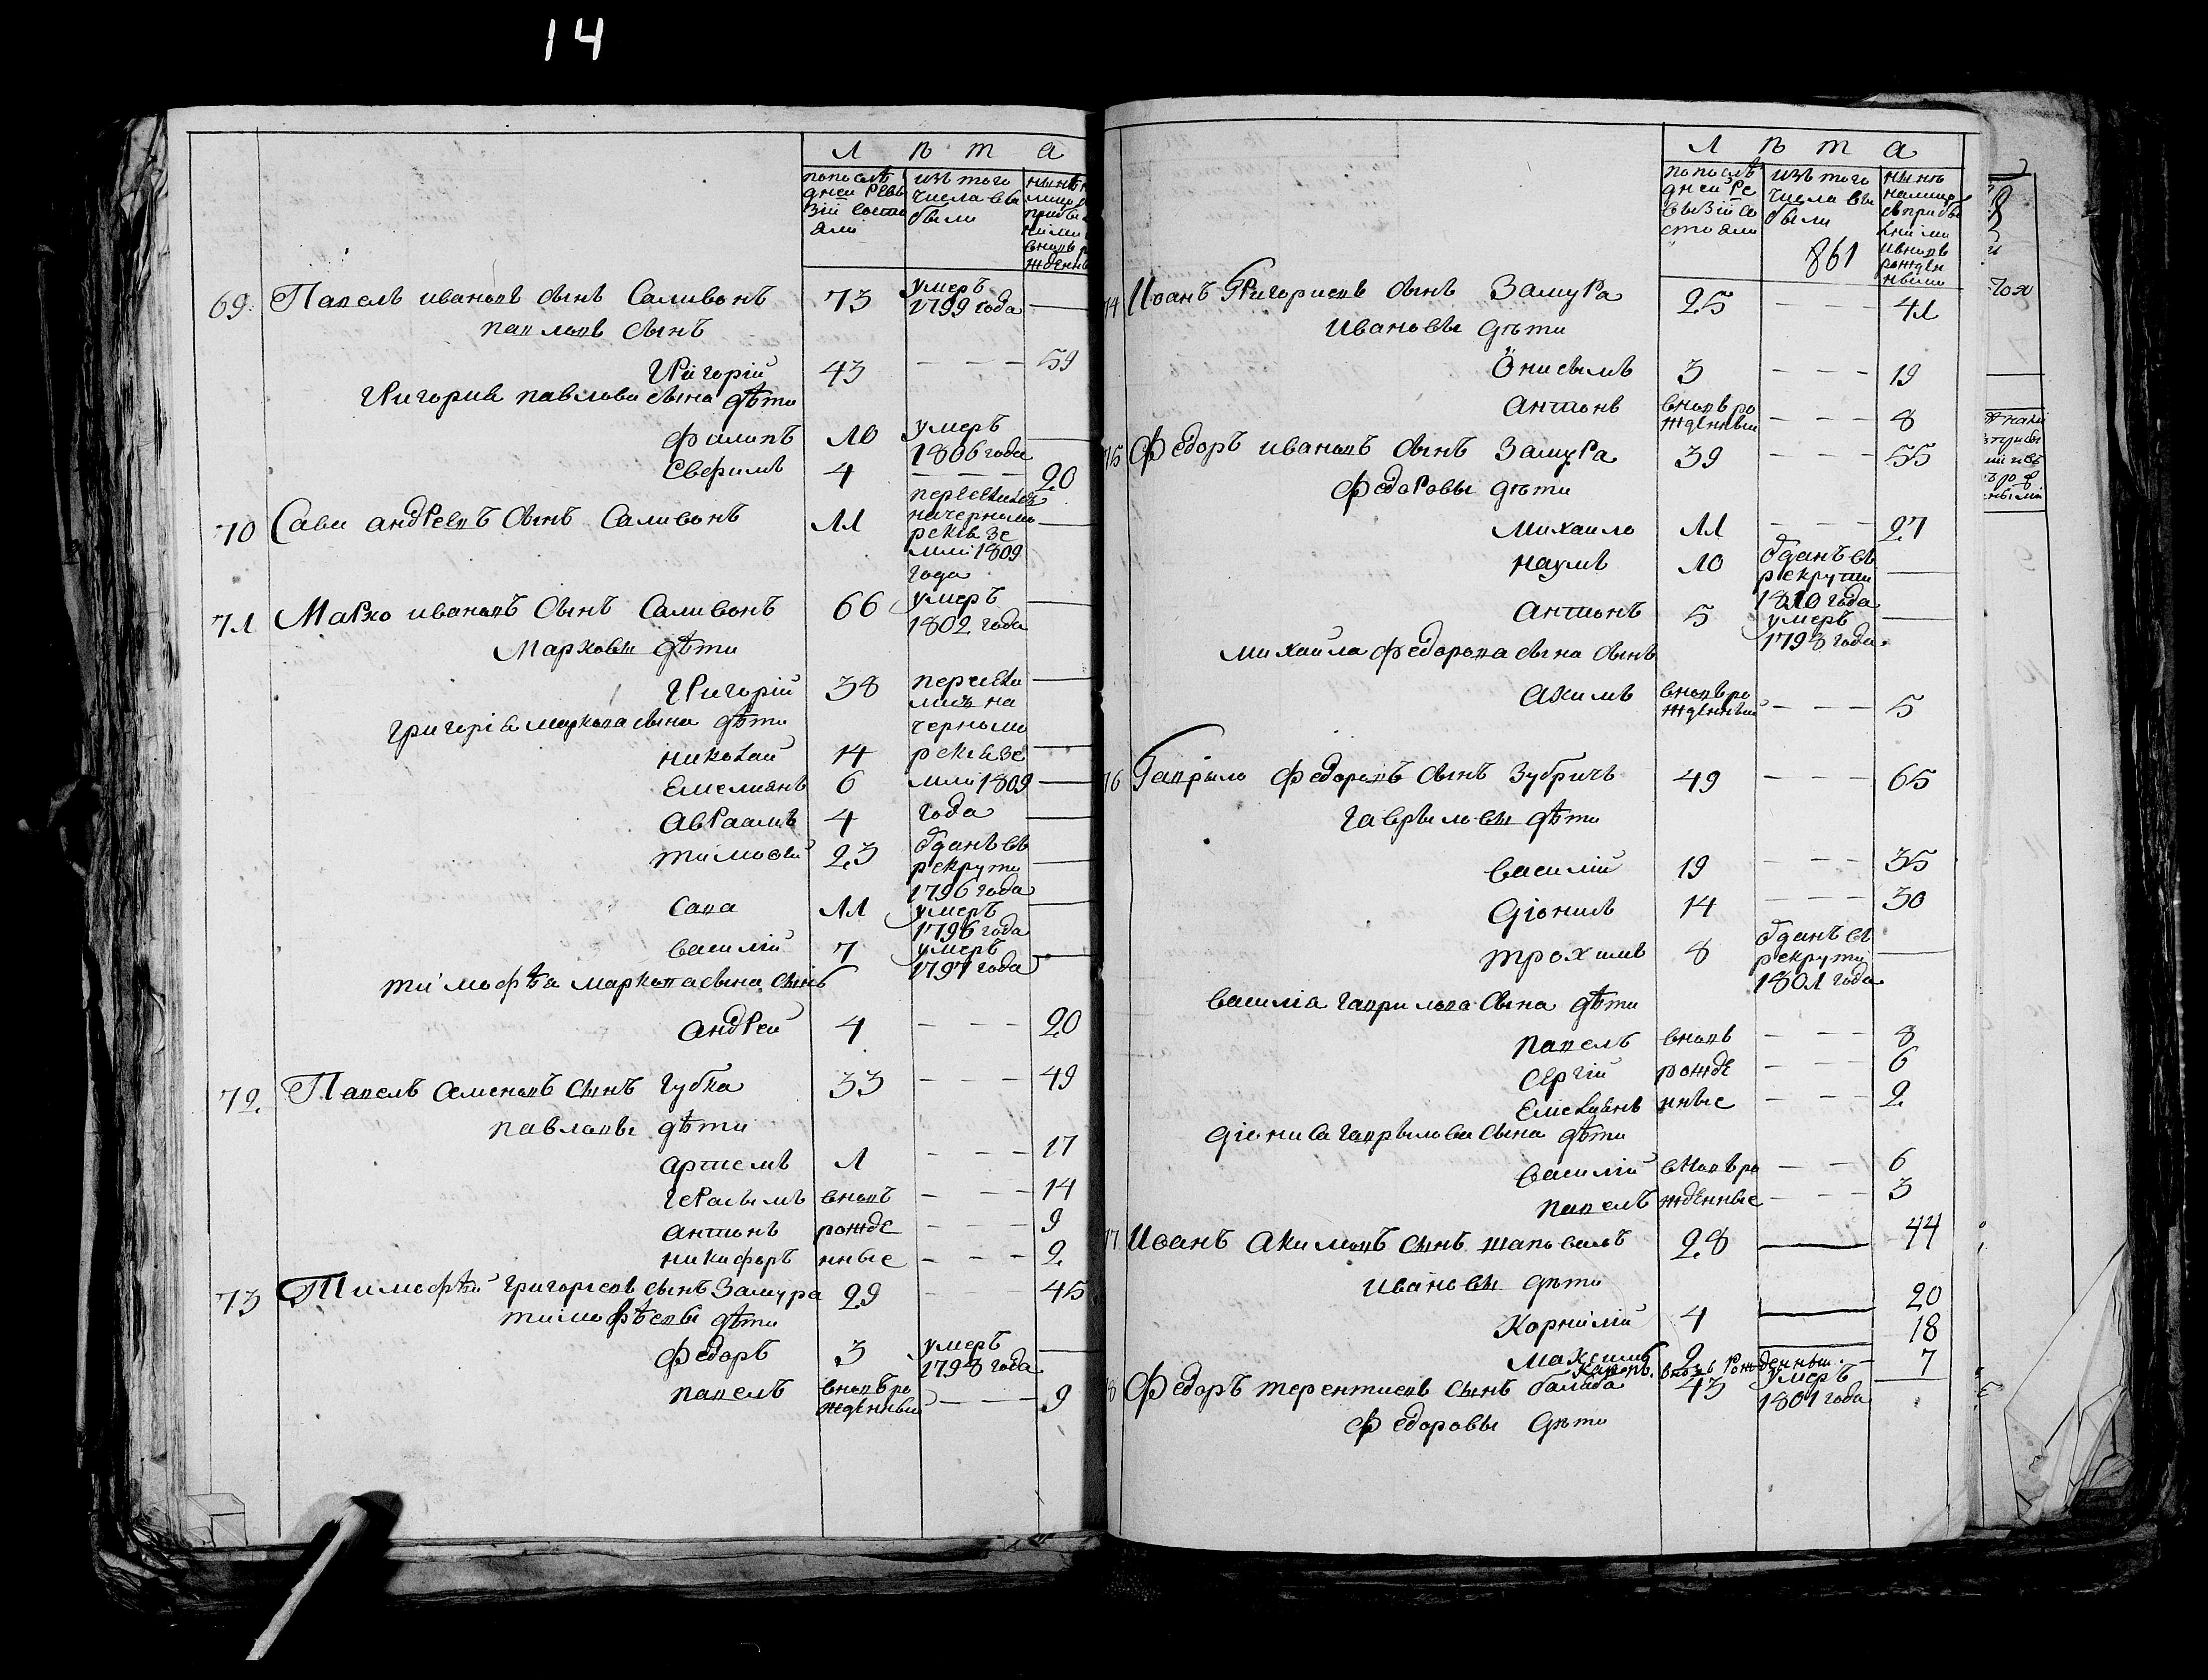 14
Л ѣ т а
по послѣ
дней реви
зій состо
яли
изъ того
числа вы
были
нынѣ
вновь
69. Павелъ ивановъ сынъ Саливонъ 73 умеръ 1799 года —
павловъ сынъ
Григорій 43 — — — 59
Григорія павлова сына дѣти
Филипъ 10 умеръ 1806 года —
Евфимъ 4 — — — 20
70 Сава андреевъ сынъ Саливонъ 11 перечислѣ
на черномо
рскія зе
мли 1809
года —
71 Марко ивановъ сынъ Саливонъ 66 умеръ 1802 года —
Марковы дѣти
Григорій 38 перечи —
Григорія маркова сына дѣти
николай 14 —
Емелиянъ 6 —
Авраамъ 4 —
слись на
черномо
рскія зе
мли 1809
года
тимоѳей 23 отданъ въ
рекруты
1796 года —
сава 11 умеръ
1796 года —
василій 7 умеръ
1797 года —
тимофѣя маркова сына сынъ
андрей 4 — — — 20
72. Павелъ семеновъ сынъ Губка 33 — — — 49
павловы дѣти
артемъ 1 — — — 17
герасымъ вновь — — — 14
антонъ рожде — — — 9
никифоръ нные — — — 2
73 Тимофѣй григориевъ сынъ Замура 29 — — — 45
тимофѣевы дѣти
Федоръ 3 умеръ
1798 года —
павелъ вновь ро
жденный — — — 9
Л ѣ т а
по послѣ
дней ре
визій со
стояли
изъ того
числа вы
были
861
нынѣ
на лицо
съ прибы
лыми
и вновь
рожден
ными
74 Иванъ Григориевъ сынъ Замура 25 — — — 41
Ивановы дѣти
Онисымъ 3 — — — 19
Антонъ вновь ро
жденный — — — 8
75 Федоръ ивановъ сынъ Замура 39 — — — 55
Федоровы дѣти
михаило 11 — — — 27
наумъ 10 отданъ въ
рекруты
1810 года —
Антонъ 5 умеръ
1798 года —
михаила федорова сына сынъ
Акимъ вновь ро
жденный — — — 5
76 Гаврыло Федоровъ сынъ Зубричъ 49 — — — 65
Гаврыловы дѣти
василій 19 — — — 35
діонисъ 14 — — — 30
трохимъ 8 отданъ въ
рекруты
1801 года —
василія гаврилова сына дѣти
павелъ вновь — — — 8
сергій рожде — — — 6
Емелиянъ нные — — — 2
гаврылова сына дѣти
василій вновь ро — — 6
павелъ жденные — — 3
77 Иванъ Акимовъ сынъ шаповалъ 28 — 44
Ивановы дѣти
Корнилій 4 — 20
Максимъ 2 — 18
Карпъ. вновь Рожденный. — 7
78 Федоръ терентиевъ сынъ балаба 43 умеръ
1801 года —
Федоровы дѣти